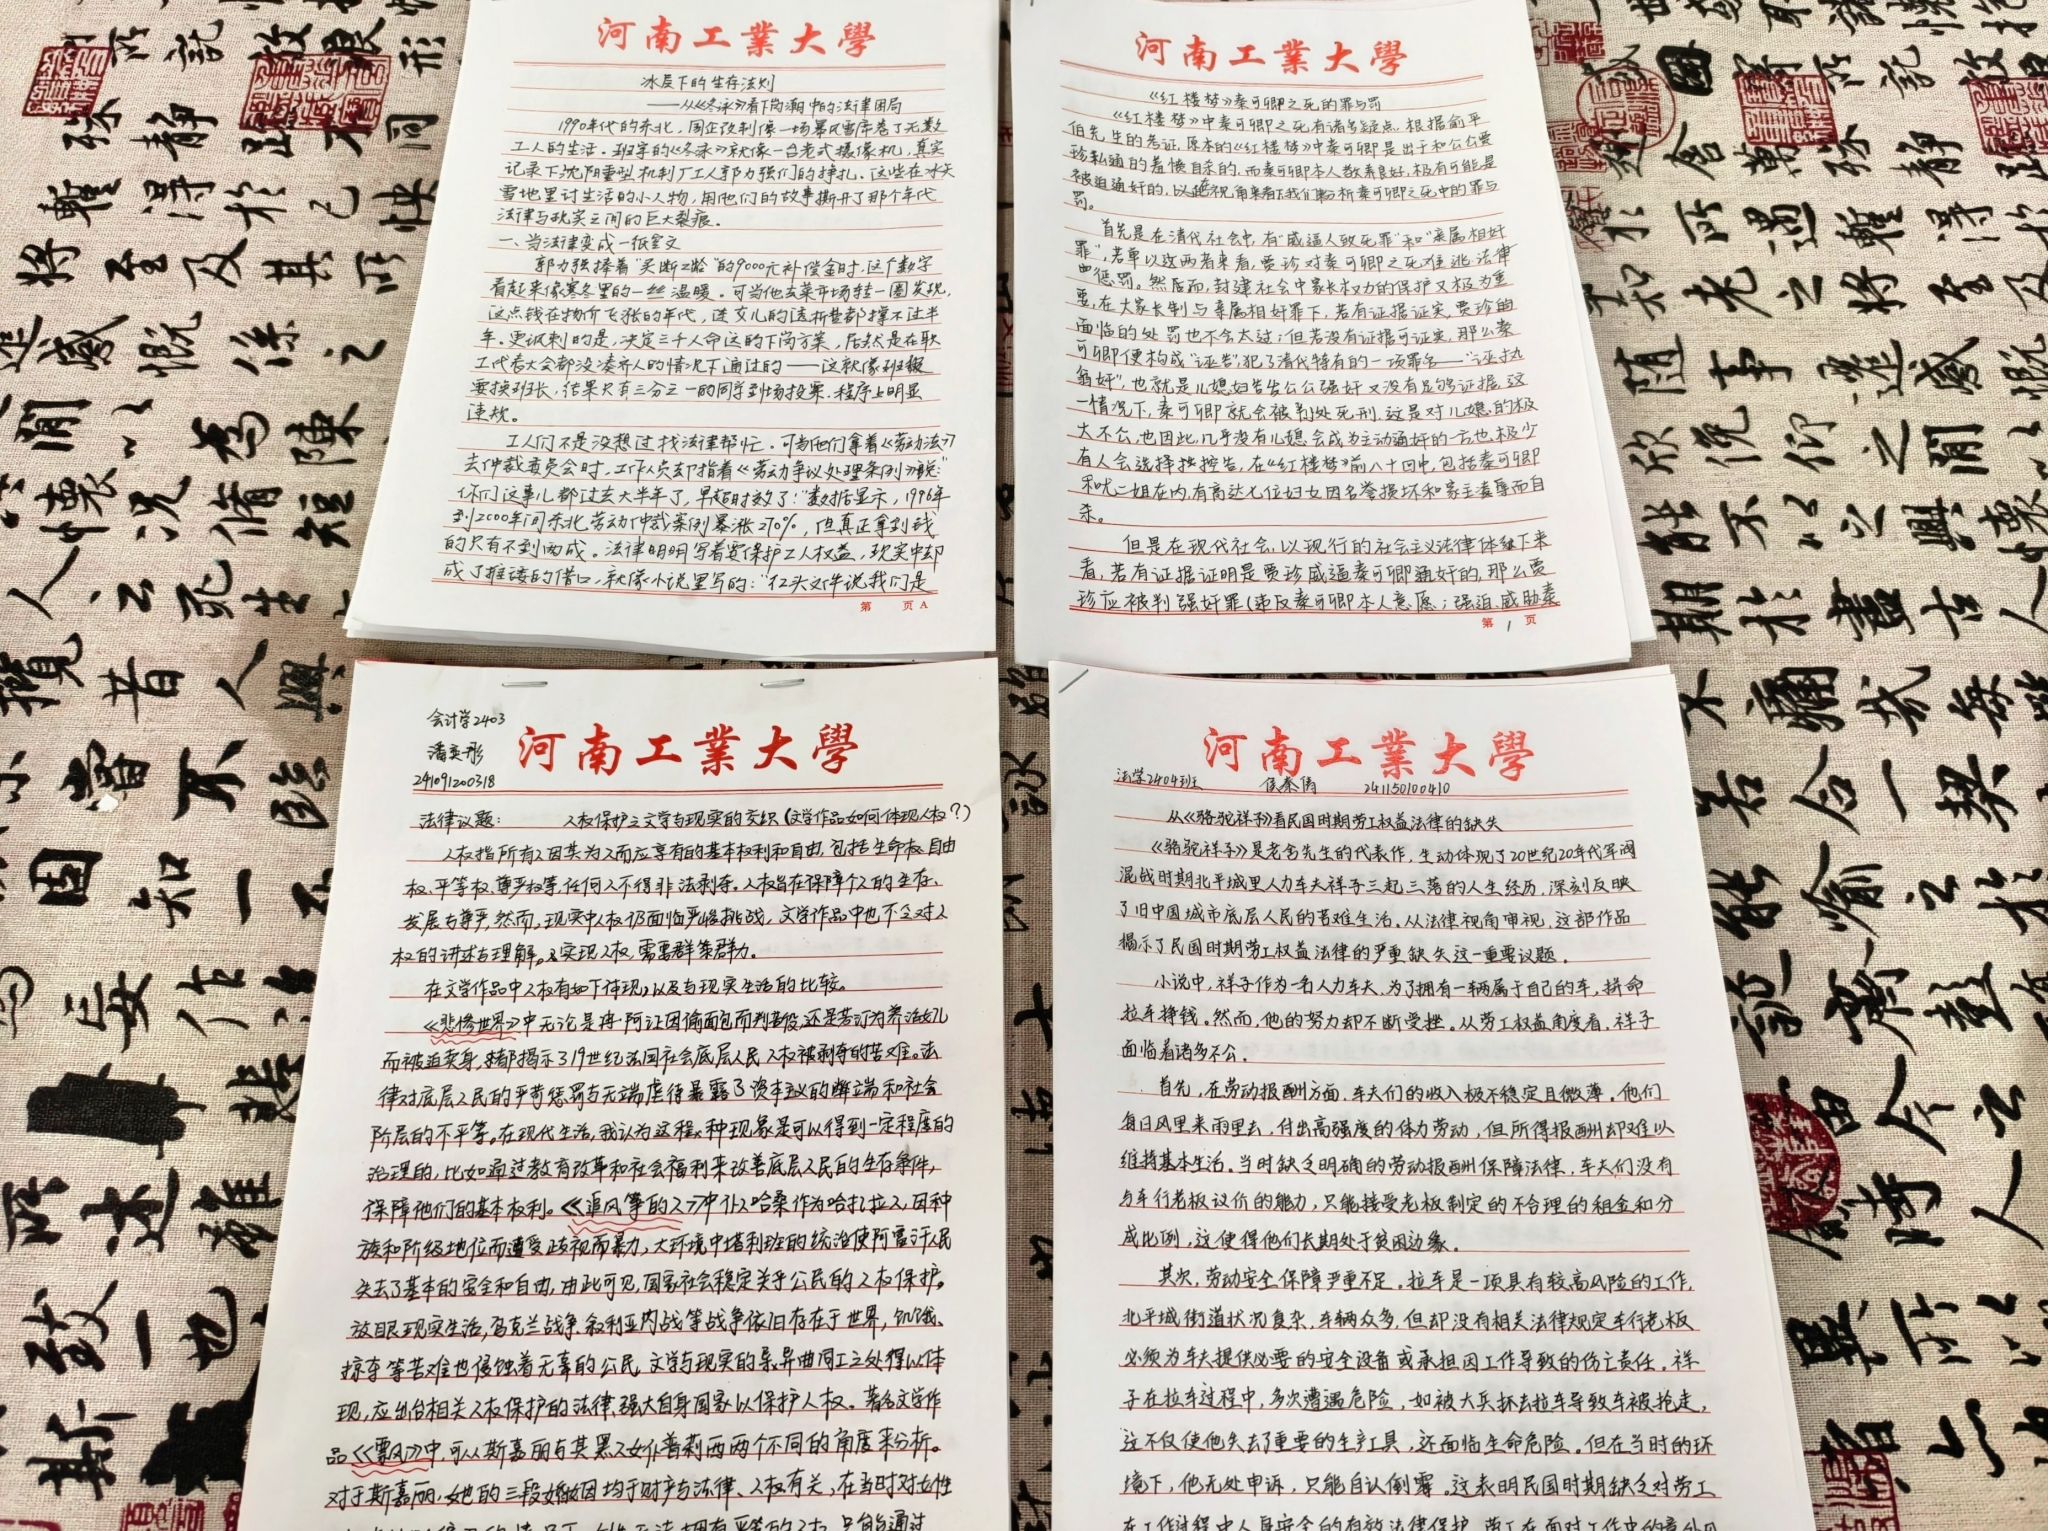 河南工業大學
冰层下的生存法则
——从《冬泳》看下岗潮中的法律困局
1990年代的东北，国企改制像一场暴风雪席卷了无数
工人的生活。班宇的《冬泳》就像一台老式摄像机，真实
记录下沈阳重型机制厂工人郭力强们的挣扎。这些在冰天
雪地里讨生活的小人物，用他们的故事撕开了那个年代
法律与现实之间的巨大裂痕。
一、当法律变成一纸空文
郭力强捧着"买断工龄"的9000元补偿金时，这个数字
看起来像寒冬里的一丝温暖。可当他去菜市场转一圈发现，
这点钱在物价飞涨的年代，连女儿的透析费都撑不过半
年。更讽刺的是，决定三千人命运的下岗方案，居然是在职
工代表大会都没凑齐人的情况下通过的——这就像班级
要换班长，结果只有三分之一的同学到场投票，程序上明显
违规。
工人们不是没想过找法律帮忙。可当他们拿着《劳动法》
去仲裁委员会时，工作人员却指着《劳动争议处理条例》说："
你们这事儿都过去大半年了，早超时效了！"数据显示，1996年
到2000年间东北劳动仲裁案例暴涨270%，但真正拿到钱
的只有不到两成。法律明明写着要保护工人权益，现实中却
成了推诿的借口，就像小说里写的："红头文件说我们是
第 页A
河南工業大學
《红楼梦》秦可卿之死的罪与罚
《红楼梦》中秦可卿之死有诸多疑点，根据俞平
伯先生的考证，原本的《红楼梦》中秦可卿是出于和公公贾
珍私通的羞愤自杀的，而秦可卿本人教养良好，极有可能是
被迫通奸的，以此视角来看下我们来分析秦可卿之死中的罪与
罚。
首先是在清代社会中，有"威逼人致死罪"和"亲属相奸
罪"，若单以这两者来看，贾珍对秦可卿之死难逃法律
惩罚。然后而，封建社会中家长权力的保护又极为重
要，在大家长制与亲属相奸罪下，若有证据证实，贾珍的
面临的处罚也不会太过；但若没有证据可证实，那么秦
可卿便构成"诬告"，犯了清代特有的一项罪名——"诬执
翁奸"，也就是儿媳妇告公公强奸又没有足够证据，这
一情况下，秦可卿就会被判处死刑，这是对儿媳的极
大不公，也因此，几乎没有儿媳会成为主动通奸的一方也极少
有人会选择控告，在《红楼梦》前八十回中，包括秦可卿
和尤二姐在内，有高达七位妇女因名誉损坏和家主凌辱而自
杀。
但是在现代社会，以现行的社会主义法律体系下来
看，若有证据证明是贾珍威逼秦可卿通奸的，那么贾
珍应被判强奸罪（违反秦可卿本人意愿；强迫、威胁秦
第 1 页
会计学2403
潘奕彤
241091200318
河南工業大學
法律议题： 人权保护之文学与现实的交织（文学作品如何体现人权？）
人权指所有人因其为人而应享有的基本权利和自由，包括生命权、自由
权、平等权、尊严权等，任何人不得非法剥夺。人权旨在保障个人的生存、
发展与尊严，然而，现实中人权仍面临严峻挑战，文学作品中也不乏对人
权的讲述与理解。实现人权，需要群策群力。
在文学作品中人权有如下体现，以及与现实生活的比较。
《悲惨世界》中无论是冉·阿让因偷面包而判苦役，还是芳汀为养活幼儿
而被迫卖身，都揭示了19世纪法国社会底层人民人权被剥夺的苦难。法
律对底层人民的严苛惩罚与无端虐待暴露了资本主义的弊端和社会
阶层的不平等。在现代生活，我认为这种现象是可以得到一定程度的
治理的，比如通过教育改革和社会福利来改善底层人民的生存条件，
保障他们的基本权利。《追风筝的人》中仆人哈桑作为哈扎拉人，因种
族和阶级地位而遭受歧视而暴力，大环境中塔利班的统治使阿富汗人民
失去了基本的安全和自由，由此可见，国家社会稳定关乎公民的人权保护。
放眼现实生活，乌克兰战争、叙利亚内战等战争依旧存在于世界，饥饿、
掠夺等苦难也侵蚀着无辜的公民，文学与现实的异曲同工之处得以体
现，应出台相关人权保护的法律、强大自身国家以保护人权。著名文学作
品《飘》中，可以斯嘉丽与其黑人女仆普莉西两个不同的角度来分析。
对于斯嘉丽，她的三段婚姻因均于财产与法律、人权有关，在当时对女性
河南工業大學
法学2404班 侯秦倩 241150100410
从《骆驼祥子》看民国时期劳工权益法律的缺失
《骆驼祥子》是老舍先生的代表作，生动体现了20世纪20年代军阀
混战时期北平城里人力车夫祥子三起三落的人生经历，深刻反映
了旧中国城市底层人民的苦难生活。从法律视角审视，这部作品
揭示了民国时期劳工权益法律的严重缺失这一重要议题。
小说中，祥子作为一名人力车夫，为了拥有一辆属于自己的车，拼命
拉车挣钱。然而，他的努力却不断受挫。从劳工权益角度看，祥子
面临着诸多不公。
首先，在劳动报酬方面，车夫们的收入极不稳定且微薄。他们
每日风里来雨里去，付出高强度的体力劳动，但所得报酬却难以
维持基本生活。当时缺乏明确的劳动报酬保障法律，车夫们没有
与车行老板议价的能力，只能接受老板制定的不合理的租金和分
成比例，这使得他们长期处于贫困边缘。
其次，劳动安全保障严重不足。拉车是一项具有较高风险的工作，
北平城街道状况复杂，车辆众多，但却没有相关法律规定车行老板
必须为车夫提供必要的安全设备或承担因工作导致的伤亡责任。祥
子在拉车过程中，多次遭遇危险，如被大兵抓去拉车导致车被抢走，
这不仅使他失去了重要的生产工具，还面临生命危险。但在当时的环
境下，他无处申诉，只能自认倒霉。这表明民国时期缺乏对劳工
在工作过程中人身安全的有效法律保护，劳工在面对工作中的意外风